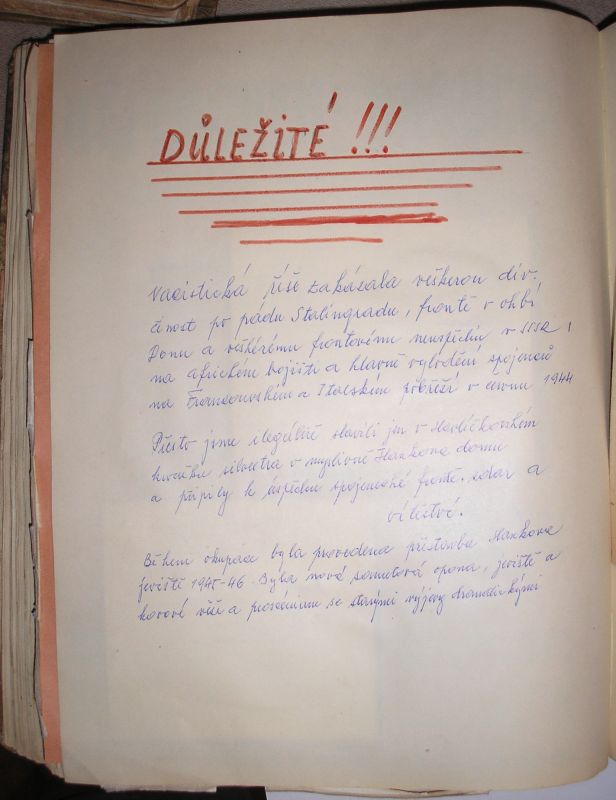 DŮLEŽITÉ !!!
Nacistická říše zakázala veškerou div.
činost po pádu Stalingradu, frontě v ohbí
Donu a veškérému frontovému neuspěchu v SSSR,
na africkém bojišti a hlavně vylodění spojenců
na Francouzském a Italském pobřeží v cervnu 1944
Přesto jsme ilegálně slavili jen v Havlíčkovském
kroužku silvestra v Hankova domu
a připily k úspěchu spojenecké fronty. zdar a
vítěství.
Během okupace byla provedena přestavba Hankova
jeviště 1945-46. Byla nová sametová opona, jeviště a
kovové věže a proscénium se starými výjevy dramatickými